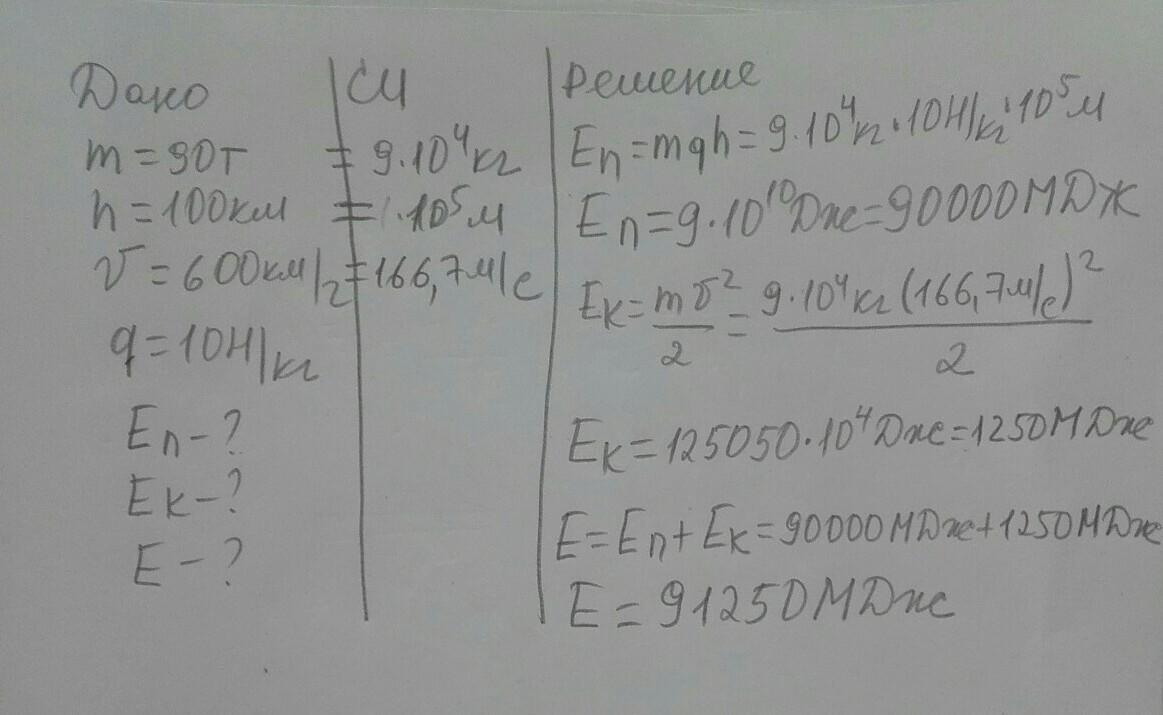 Дано
m = 90т
h = 100км
v = 600км/г
g = 10Н/кг
Eп - ?
Eк - ?
E - ?
СИ
= 9·10⁴кг
= 1·10⁵м
= 166,7м/с
Решение
Eп = mgh = 9·10⁴кг·10Н/кг·10⁵м
Eп = 9·10¹⁰Дж = 90000МДж
Eк = mv²/2 = 9·10⁴кг(166,7м/с)²/2
Eк = 125050·10⁴Дж = 1250МДж
E = Eп + Eк = 90000МДж + 1250МДж
E = 91250МДж